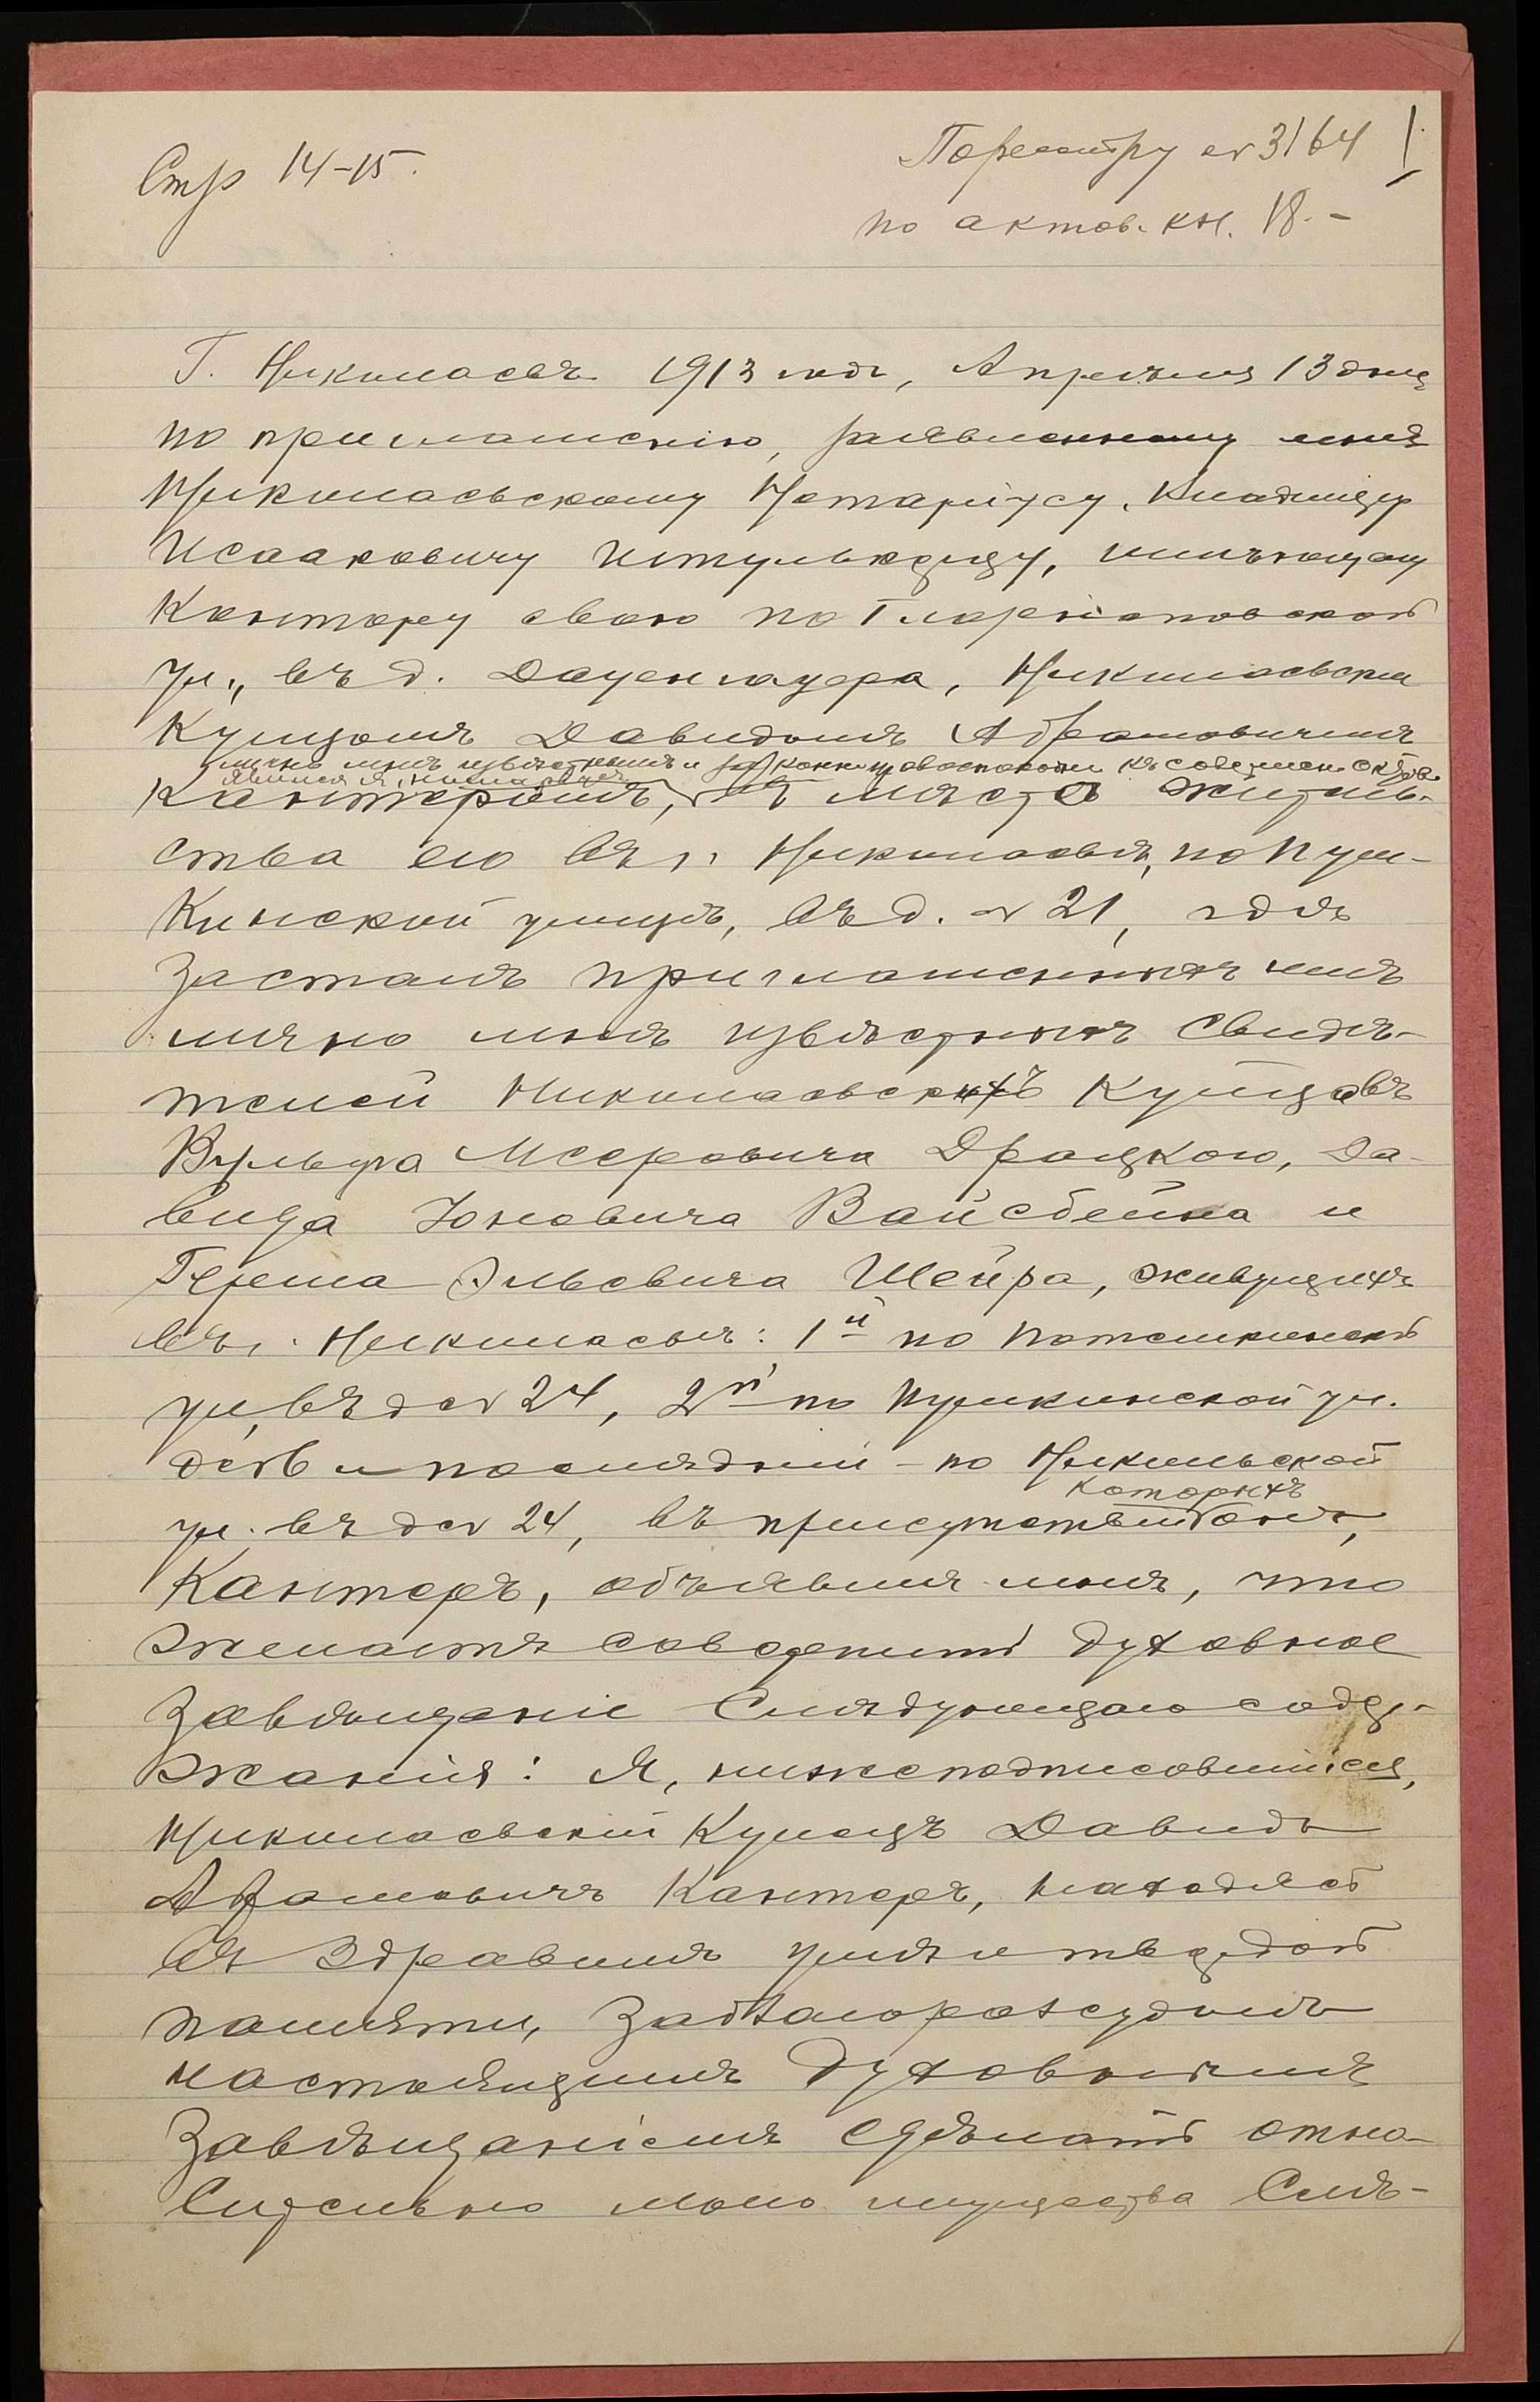 Стр 14-15.
По реестру № 3164
по актов. кн. 18.-
Г. Николаевъ 1913 года, Апрѣля 13 дня
по приглашенію, заявленному мнѣ
Николаевскому Нотаріусу, Владиміру
Исааковичу имѣющему
Контору свою по Глазенаповской
ул., въ д. Николаевскимъ
Купцомъ Давидомъ Абрамовичемъ
лично мнѣ извѣстнымъ и законную правоспособн. къ совершен. актовъ
явился я, Николаевъ
Канторомъ, въ мѣсто житель-
ства его въ г. Николаевѣ, по Пуш-
кинской улицѣ, въ д. № 21, гдѣ
засталъ приглашенныхъ имъ
лично мнѣ извѣстныхъ свидѣ-
телей Николаевскихъ Купцовъ
Вульфа Мееровича Драцкого, Да-
вида Юновича Вайсбейна и
Герша Эльевича Шейра, живущихъ
въ г. Николаевѣ: 1й по Потемкинской
ул., въ д № 24, 2й по Пушкинской ул.
д № 6 и послѣдній - по Никольской
которыхъ
ул. въ д № 24, въ присутствіи онъ,
Канторъ, объявилъ мнѣ, что
желаетъ совершить духовное
завѣщаніе слѣдующаго содер-
жанія: Я, нижеподписавшійся,
Николаевскій Купецъ Давидъ
Абрамовичъ Канторъ, находясь
въ здравомъ умѣ и твердой
памяти, заблагоразсудилъ
настоящимъ духовнымъ
завѣщаніемъ сдѣлать отно-
сительно моего имущества слѣ-